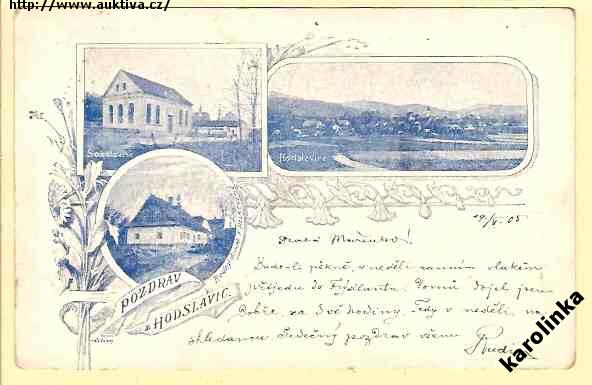 http://www.auktiva.cz/
Sokolovna
Hodslavice
POZDRAV
z HODSLAVIC.
19/V. 05
Drahá Mařenko!
Bude-li pěkně, v neděli ranním vlakem
přijedu do Frýdlantu. Domů dojel jsem
dobře, za dvě hodiny. Tedy v neděli, na
shledanou. Srdečný pozdrav všem
karolinka